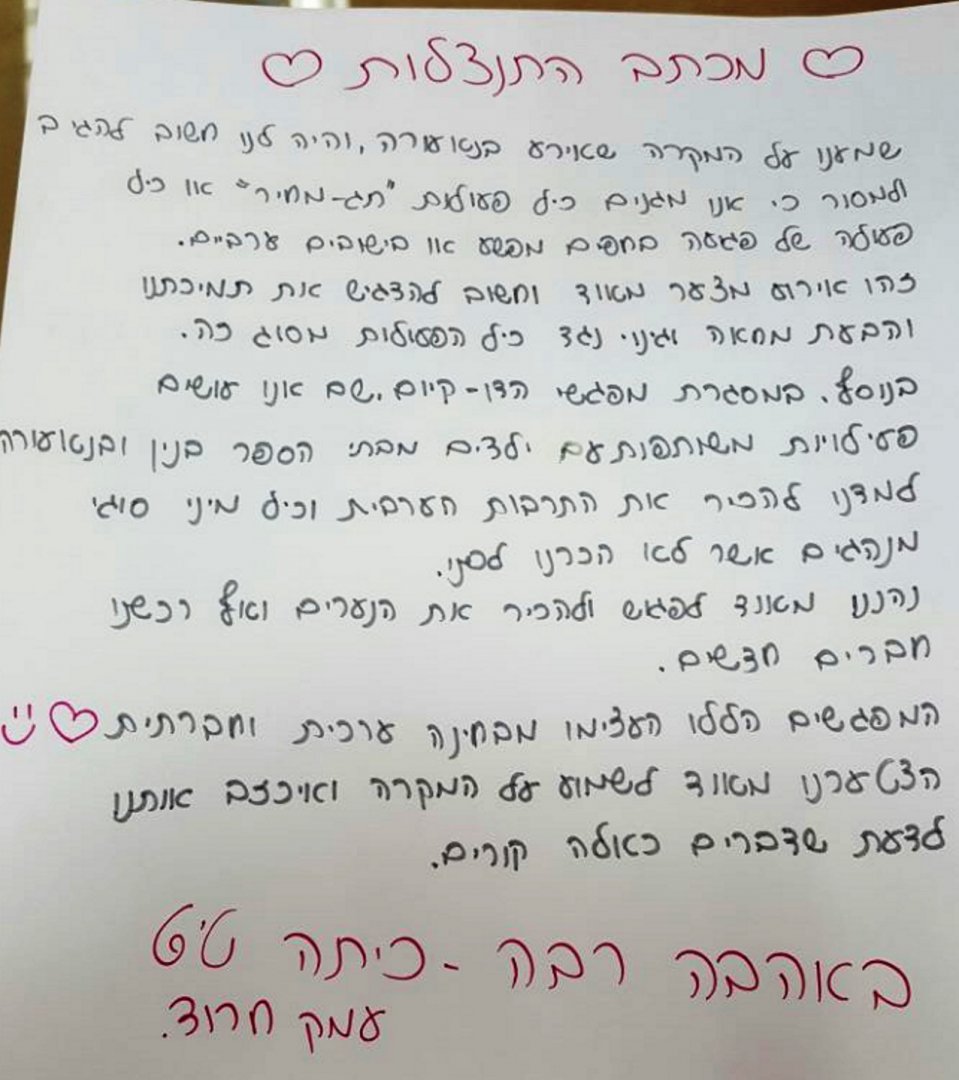 ♡ מכתב התנצלות ♡
שמענו על המקרה שאירע בנאעורה, והיה לנו חשוב להגיב
ולמסור כי אנו מגנים כל פעולות "תג-מחיר" או כל
פעולה של פגיעה בחפים מפשע או בישובים ערביים.
זהו אירוע מצער מאוד וחשוב להדגיש את תמיכתנו
והבעת מחאה וגינוי נגד כל הפעולות מסוג כזה.
בנוסף, במסגרת מפגשי הדו-קיום, שם אנו עושים
פעילויות משותפות עם ילדים מבתי הספר בנין ובנאעורה
למדנו להכיר את התרבות הערבית וכל מיני סוגי
מנהגים אשר לא הכרנו לפני.
נהננו מאוד לפגש ולהכיר את הנערים ואף רכשנו
חברים חדשים.
המפגשים הללו העצימו מבחינה ערכית וחברתית ♡
הצטערנו מאוד לשמוע על המקרה ואיכזב אותנו
לדעת שדברים כאלה קורים.
באהבה רבה - כיתה ט'6
עמק חרוד.